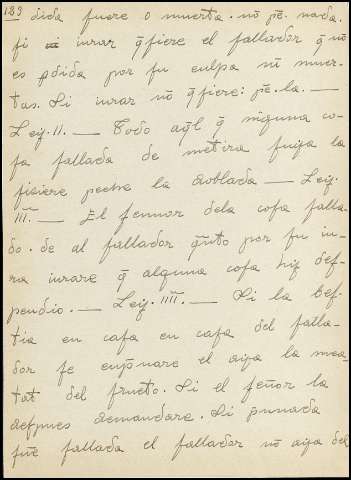 123 dida fuere o muerta. nō pē. nada.
si iurar q̄siere el fallador q̄ nō
es pdida por su culpa ni muer-
tas. Si iurar nō q̄siere: pē. la. —
Ley. II. — Todo aq̄l q̄ ninguna co-
sa fallada de metira fuya la
ficiere peche la doblada — Ley.
III. — El sennor dela cosa falla-
do. de al fallador q̄nto por su iu-
ra iurare q̄ alguna cosa hiz des-
pendio. — Ley. IIII. — Si la bes-
tia en casa en casa del falla-
dor se enpnare el aya la mea-
tat del fructo. Si el señor la
despues demandare. Si punada
fue fallada el fallador nō aya del